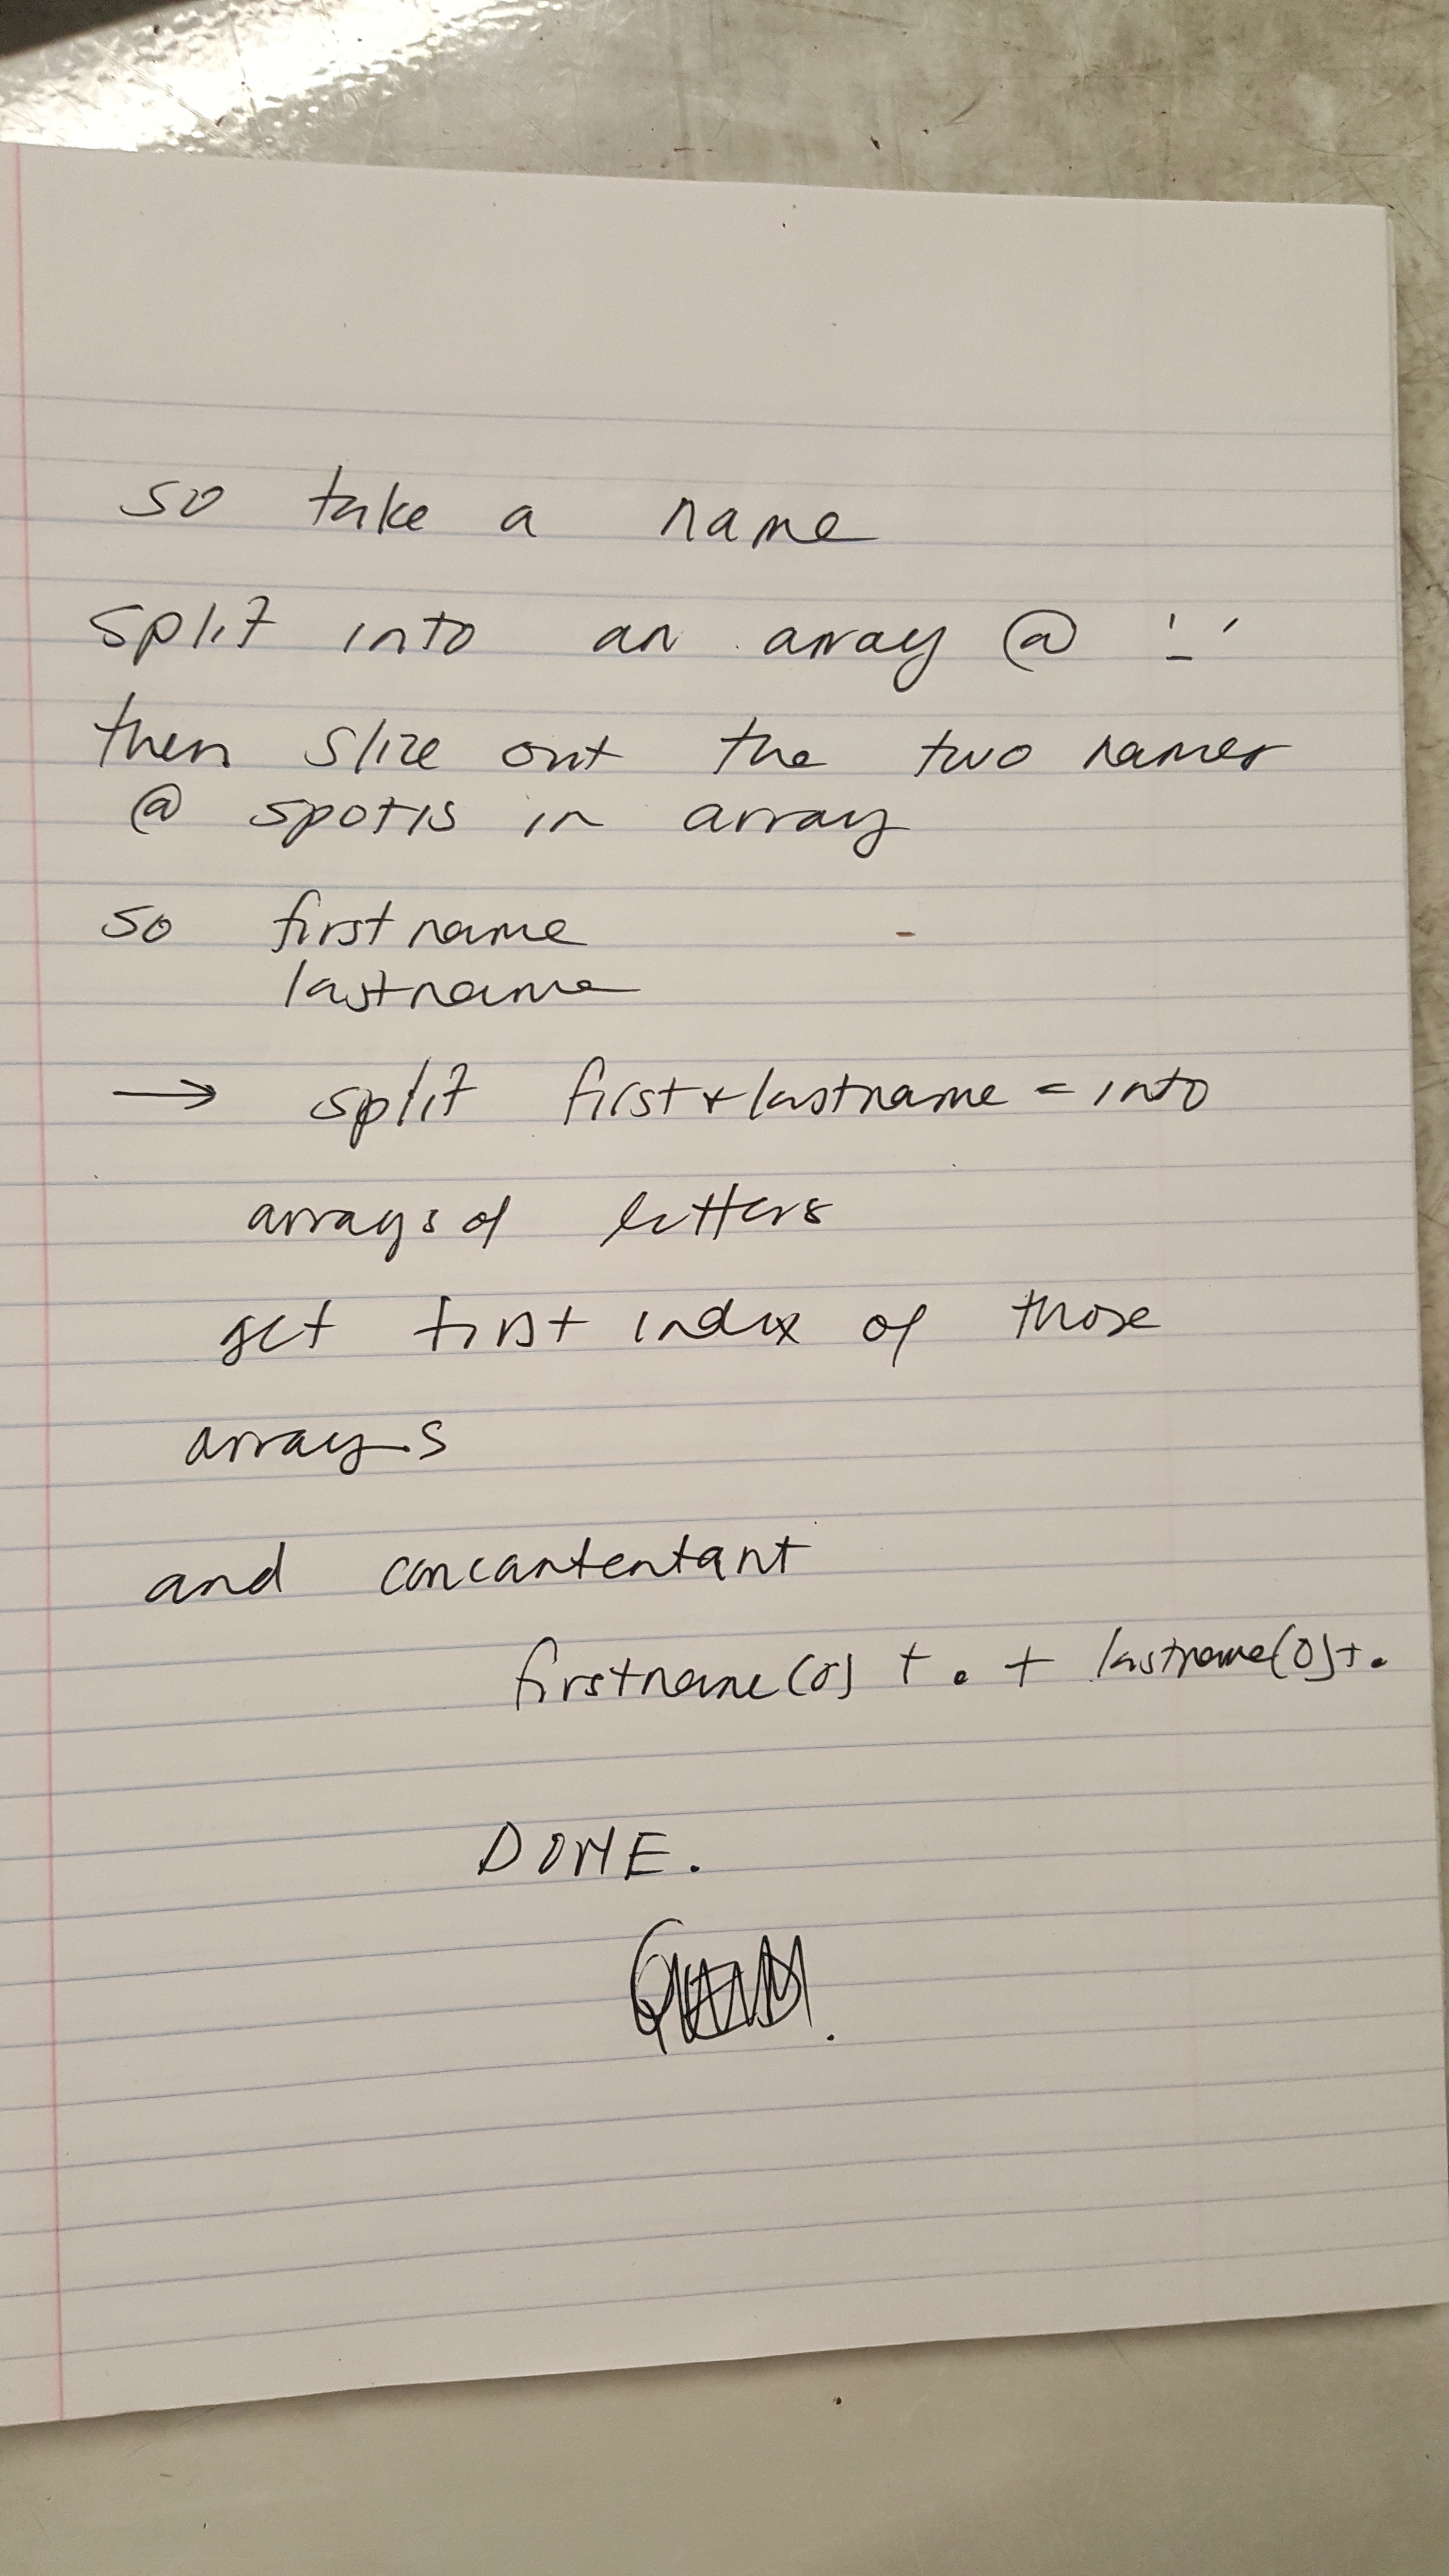 so take a name
split into an array @ '_'
then slize out the two names
@ spotis in array
so firstname
lastname
→ split first+lastname = into
arrays of letters
get first index of those
arrays
and concantentant
firstname(0] + . + lastname(0]+.
DONE.